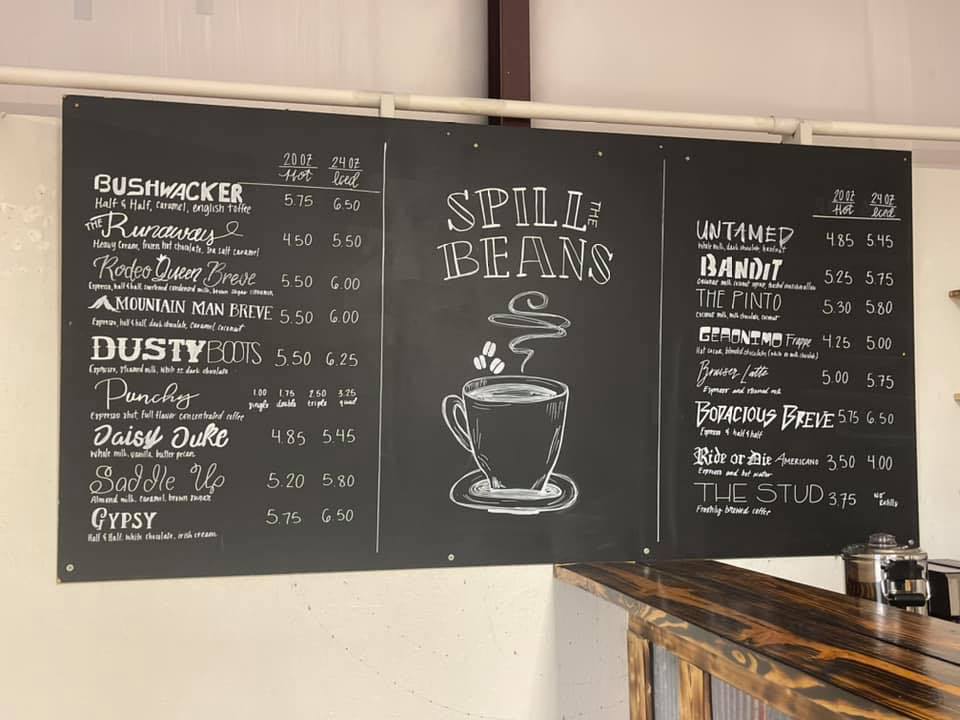 20 OZ 24 OZ
Hot Iced
BUSHWACKER 5.75 6.50
Half & Half, caramel, english toffee
THE Runaway 4.50 5.50
Heavy Cream, frozen hot chocolate, sea salt caramel
Rodeo Queen Breve 5.50 6.00
Espresso, half & half, sweetened condensed milk, brown sugar cinnamon
MOUNTAIN MAN BREVE 5.50 6.00
Espresso, half & half, dark chocolate, caramel, coconut
DUSTY BOOTS 5.50 6.25
Espresso, steamed milk, white or dark chocolate
Punchy 1.00 1.75 2.50 3.25
single double triple quad
Espresso shot, full flavor concentrated coffee
Daisy Duke 4.85 5.45
Whole milk, vanilla, butter pecan
Saddle Up 5.20 5.80
Almond milk, caramel, brown sugar
GYPSY 5.75 6.50
Half & Half, white chocolate, irish cream
SPILL THE
BEANS
20 OZ 24 OZ
Hot Iced
UNTAMED 4.85 5.45
Whole milk, dark chocolate, hazelnut
BANDIT 5.25 5.75
Coconut milk, coconut syrup, toasted marshmallow
THE PINTO 5.30 5.80
Coconut milk, milk chocolate, coconut
GERONIMO Frappe 4.25 5.00
Hot cocoa, blended chocolate (white or milk chocolate)
Bowser Latte 5.00 5.75
Espresso and steamed milk
BODACIOUS BREVE 5.75 6.50
Espresso & half & half
Ride or Die AMERICANO 3.50 4.00
Espresso and hot water
THE STUD 3.75 NO
Freshly brewed coffee